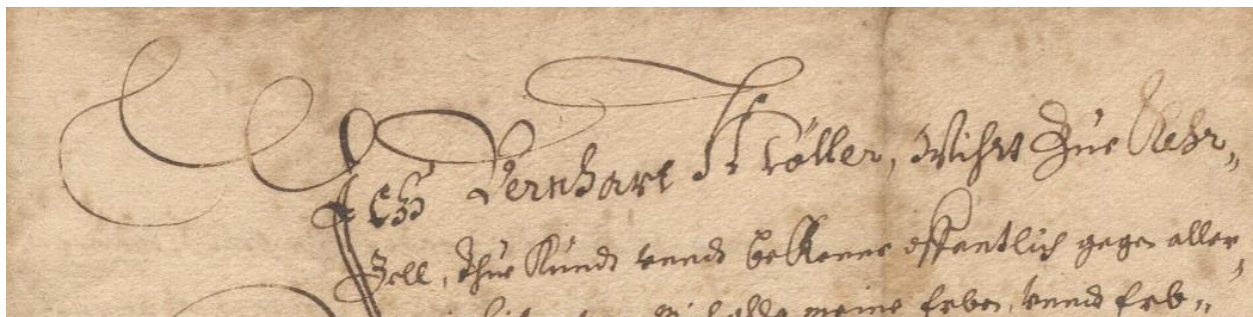 Ich Bernhart Kröller, Wihrt Zue Rehr„
Zell, Thue Kundt vnndt bekenne offentlich gegen aller„
alle meine Erben, vnnd Erb„